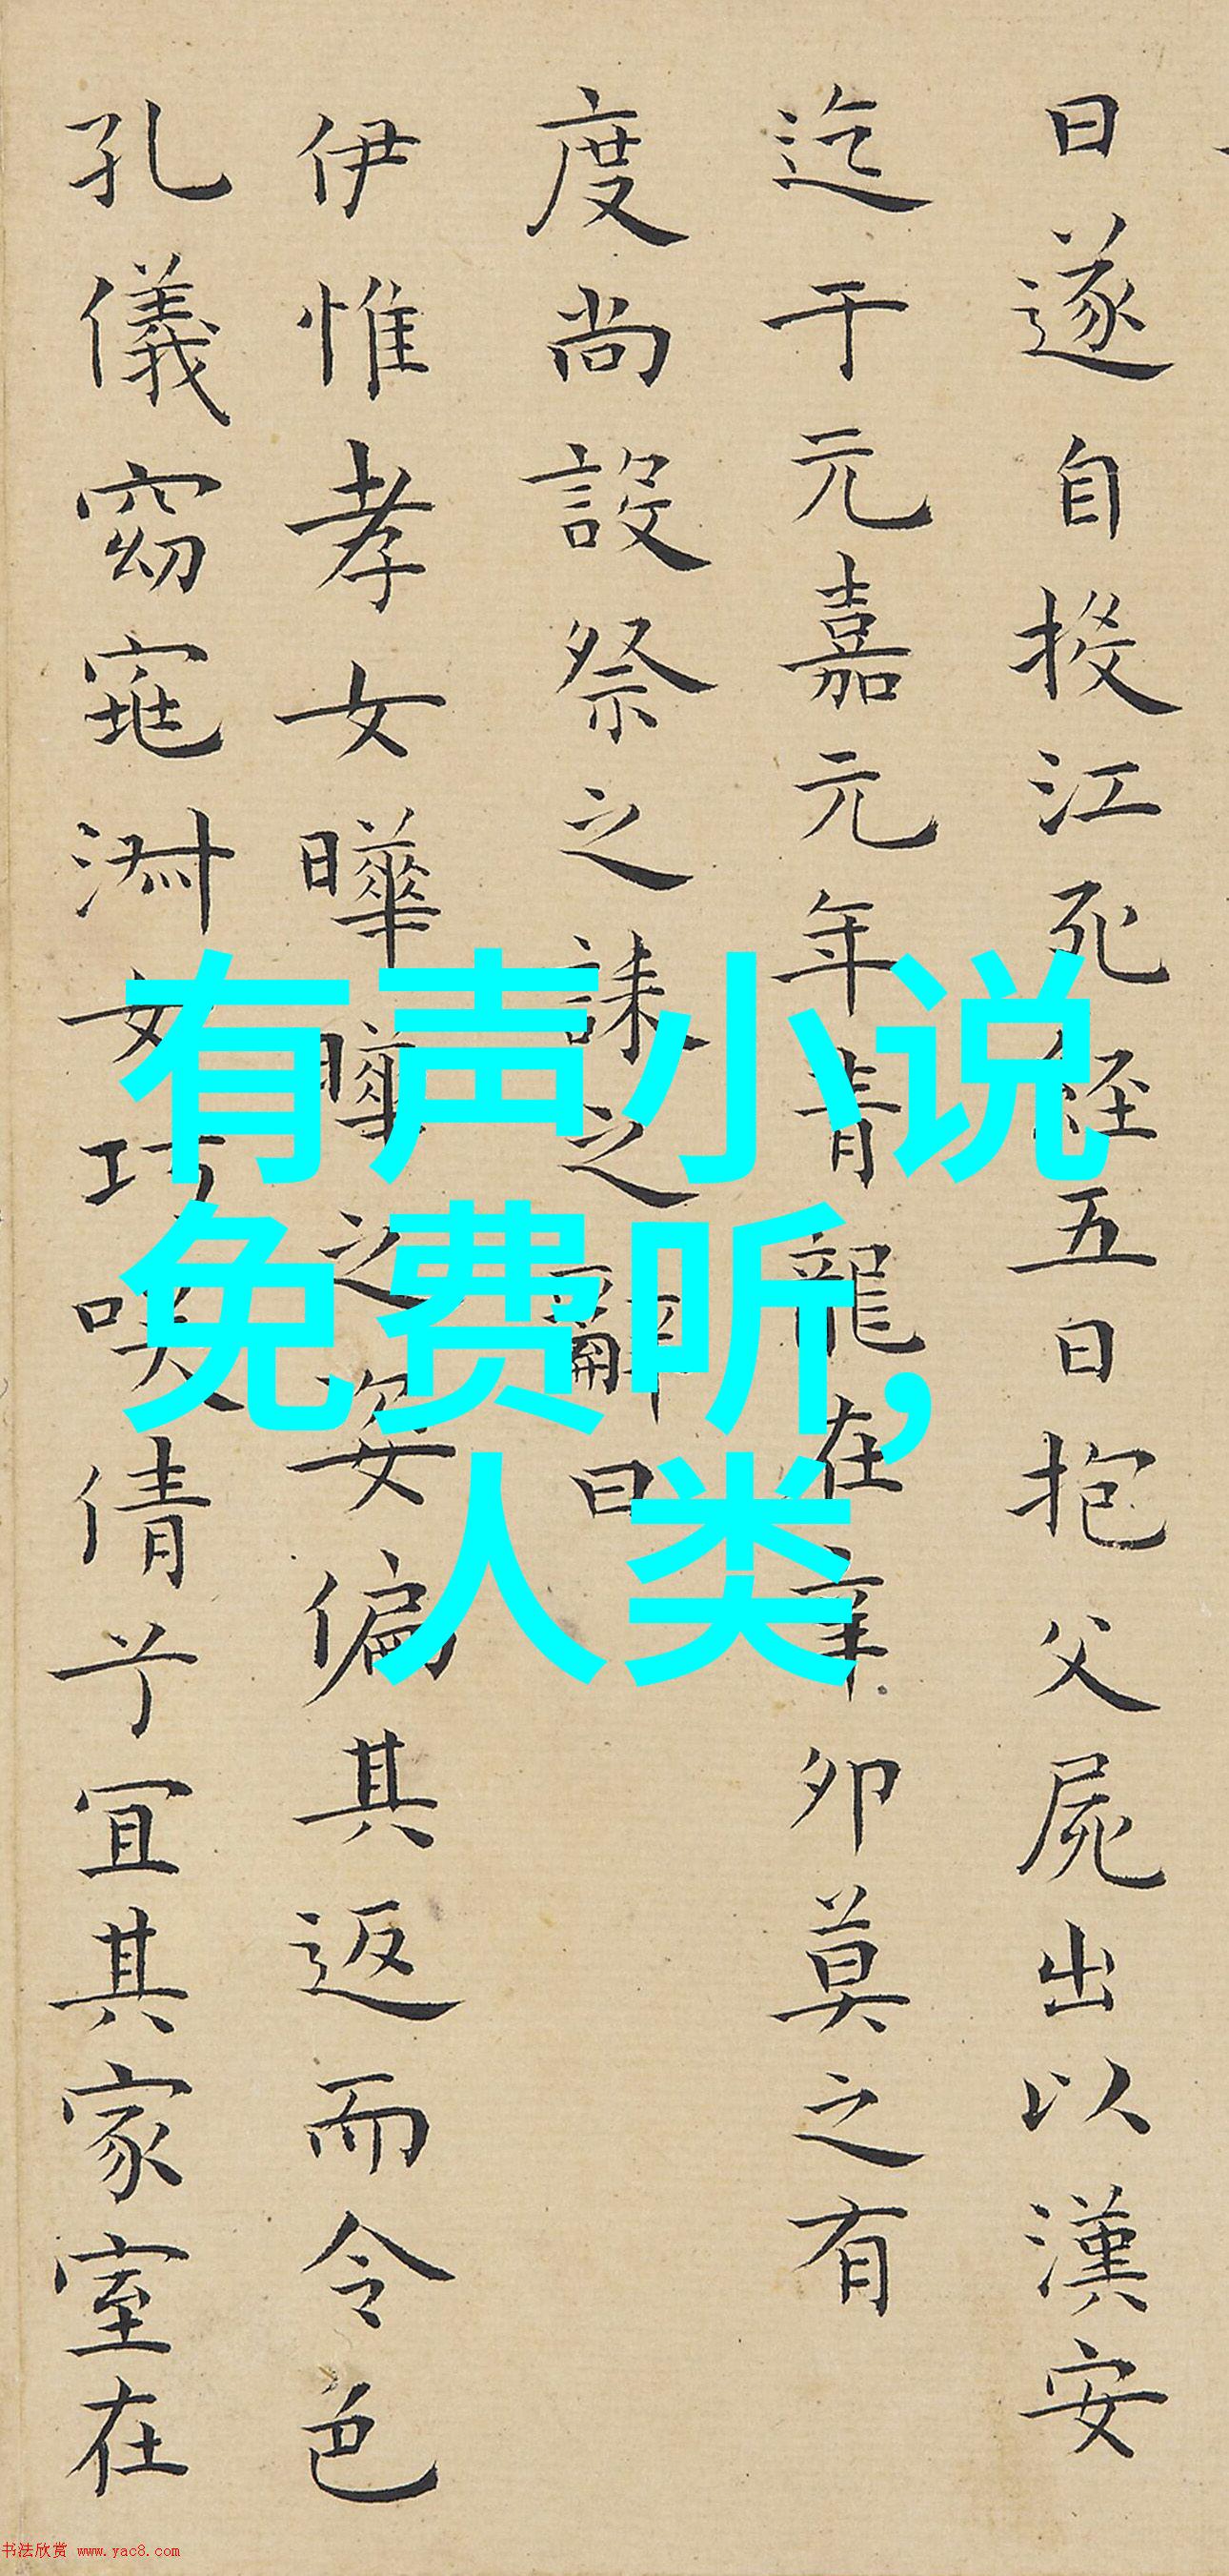 曰遂自投江死經五日抱父屍出以漢安
迄于元嘉元年青龍在辛卯莫之有
度尚設祭之誄之辭曰
伊惟孝女曄曄之姿偏其返而令色
孔儀窈窕淑女巧咲倩兮宜其家室在
有声小说
免费听,
人类
书法欣赏 www.yac8.com